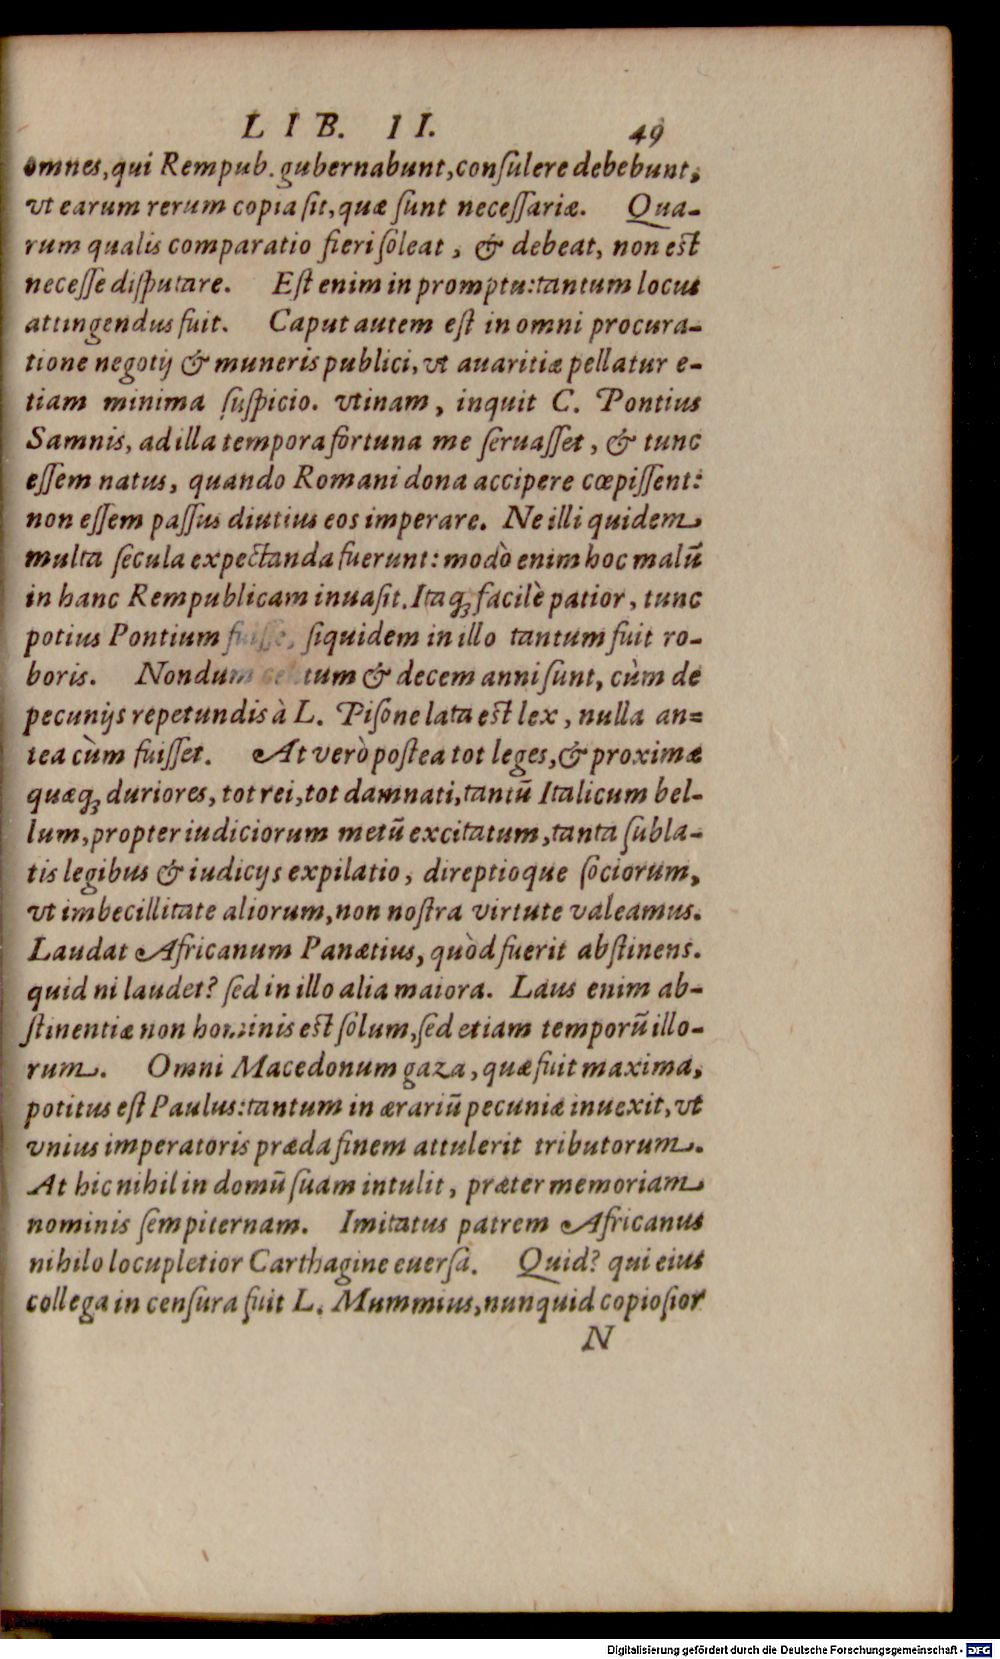 LIB. II. 49
omnes, qui Rempub. gubernabunt, conſulere debebunt,
vt earum rerum copia ſit, quæ ſunt neceſſariæ. Qua-
rum qualis comparatio fieri ſoleat, & debeat, non eſt
neceſſe diſputare. Eſt enim in promptu: tantum locus
attingendus fuit. Caput autem eſt in omni procura-
tione negotij & muneris publici, vt auaritiæ pellatur e-
tiam minima ſuſpicio. vtinam, inquit C. Pontius
Samnis, ad illa tempora fortuna me ſeruaſſet, & tunc
eſſem natus, quando Romani dona accipere cœpiſſent:
non eſſem paſſus diutius eos imperare. Ne illi quidem
multa ſecula expectanda fuerunt: modò enim hoc malū
in hanc Rempublicam inuaſit. Itaq; facilè patior, tunc
potius Pontium fuiſſe, ſiquidem in illo tantum fuit ro-
boris. Nondum centum & decem anni ſunt, cùm de
pecunijs repetundis à L. Piſone lata eſt lex, nulla an-
tea cùm fuiſſet. At verò poſtea tot leges, & proximæ
quæq; duriores, tot rei, tot damnati, tantū Italicum bel-
lum, propter iudiciorum metū excitatum, tanta ſubla-
tis legibus & iudicijs expilatio, direptioque ſociorum,
vt imbecillitate aliorum, non noſtra virtute valeamus.
Laudat Africanum Panætius, quòd fuerit abſtinens.
quid ni laudet? ſed in illo alia maiora. Laus enim ab-
ſtinentiæ non hominis eſt ſolum, ſed etiam temporū illo-
rum. Omni Macedonum gaza, quæ fuit maxima,
potitus eſt Paulus: tantum in ærariū pecuniæ inuexit, vt
vnius imperatoris præda finem attulerit tributorum.
At hic nihil in domū ſuam intulit, præter memoriam
nominis ſempiternam. Imitatus patrem Africanus
nihilo locupletior Carthagine euerſa. Quid? qui eius
collega in cenſura fuit L. Mummius, nunquid copioſior
N
Digitalisierung gefördert durch die Deutsche Forschungsgemeinschaft - DFG